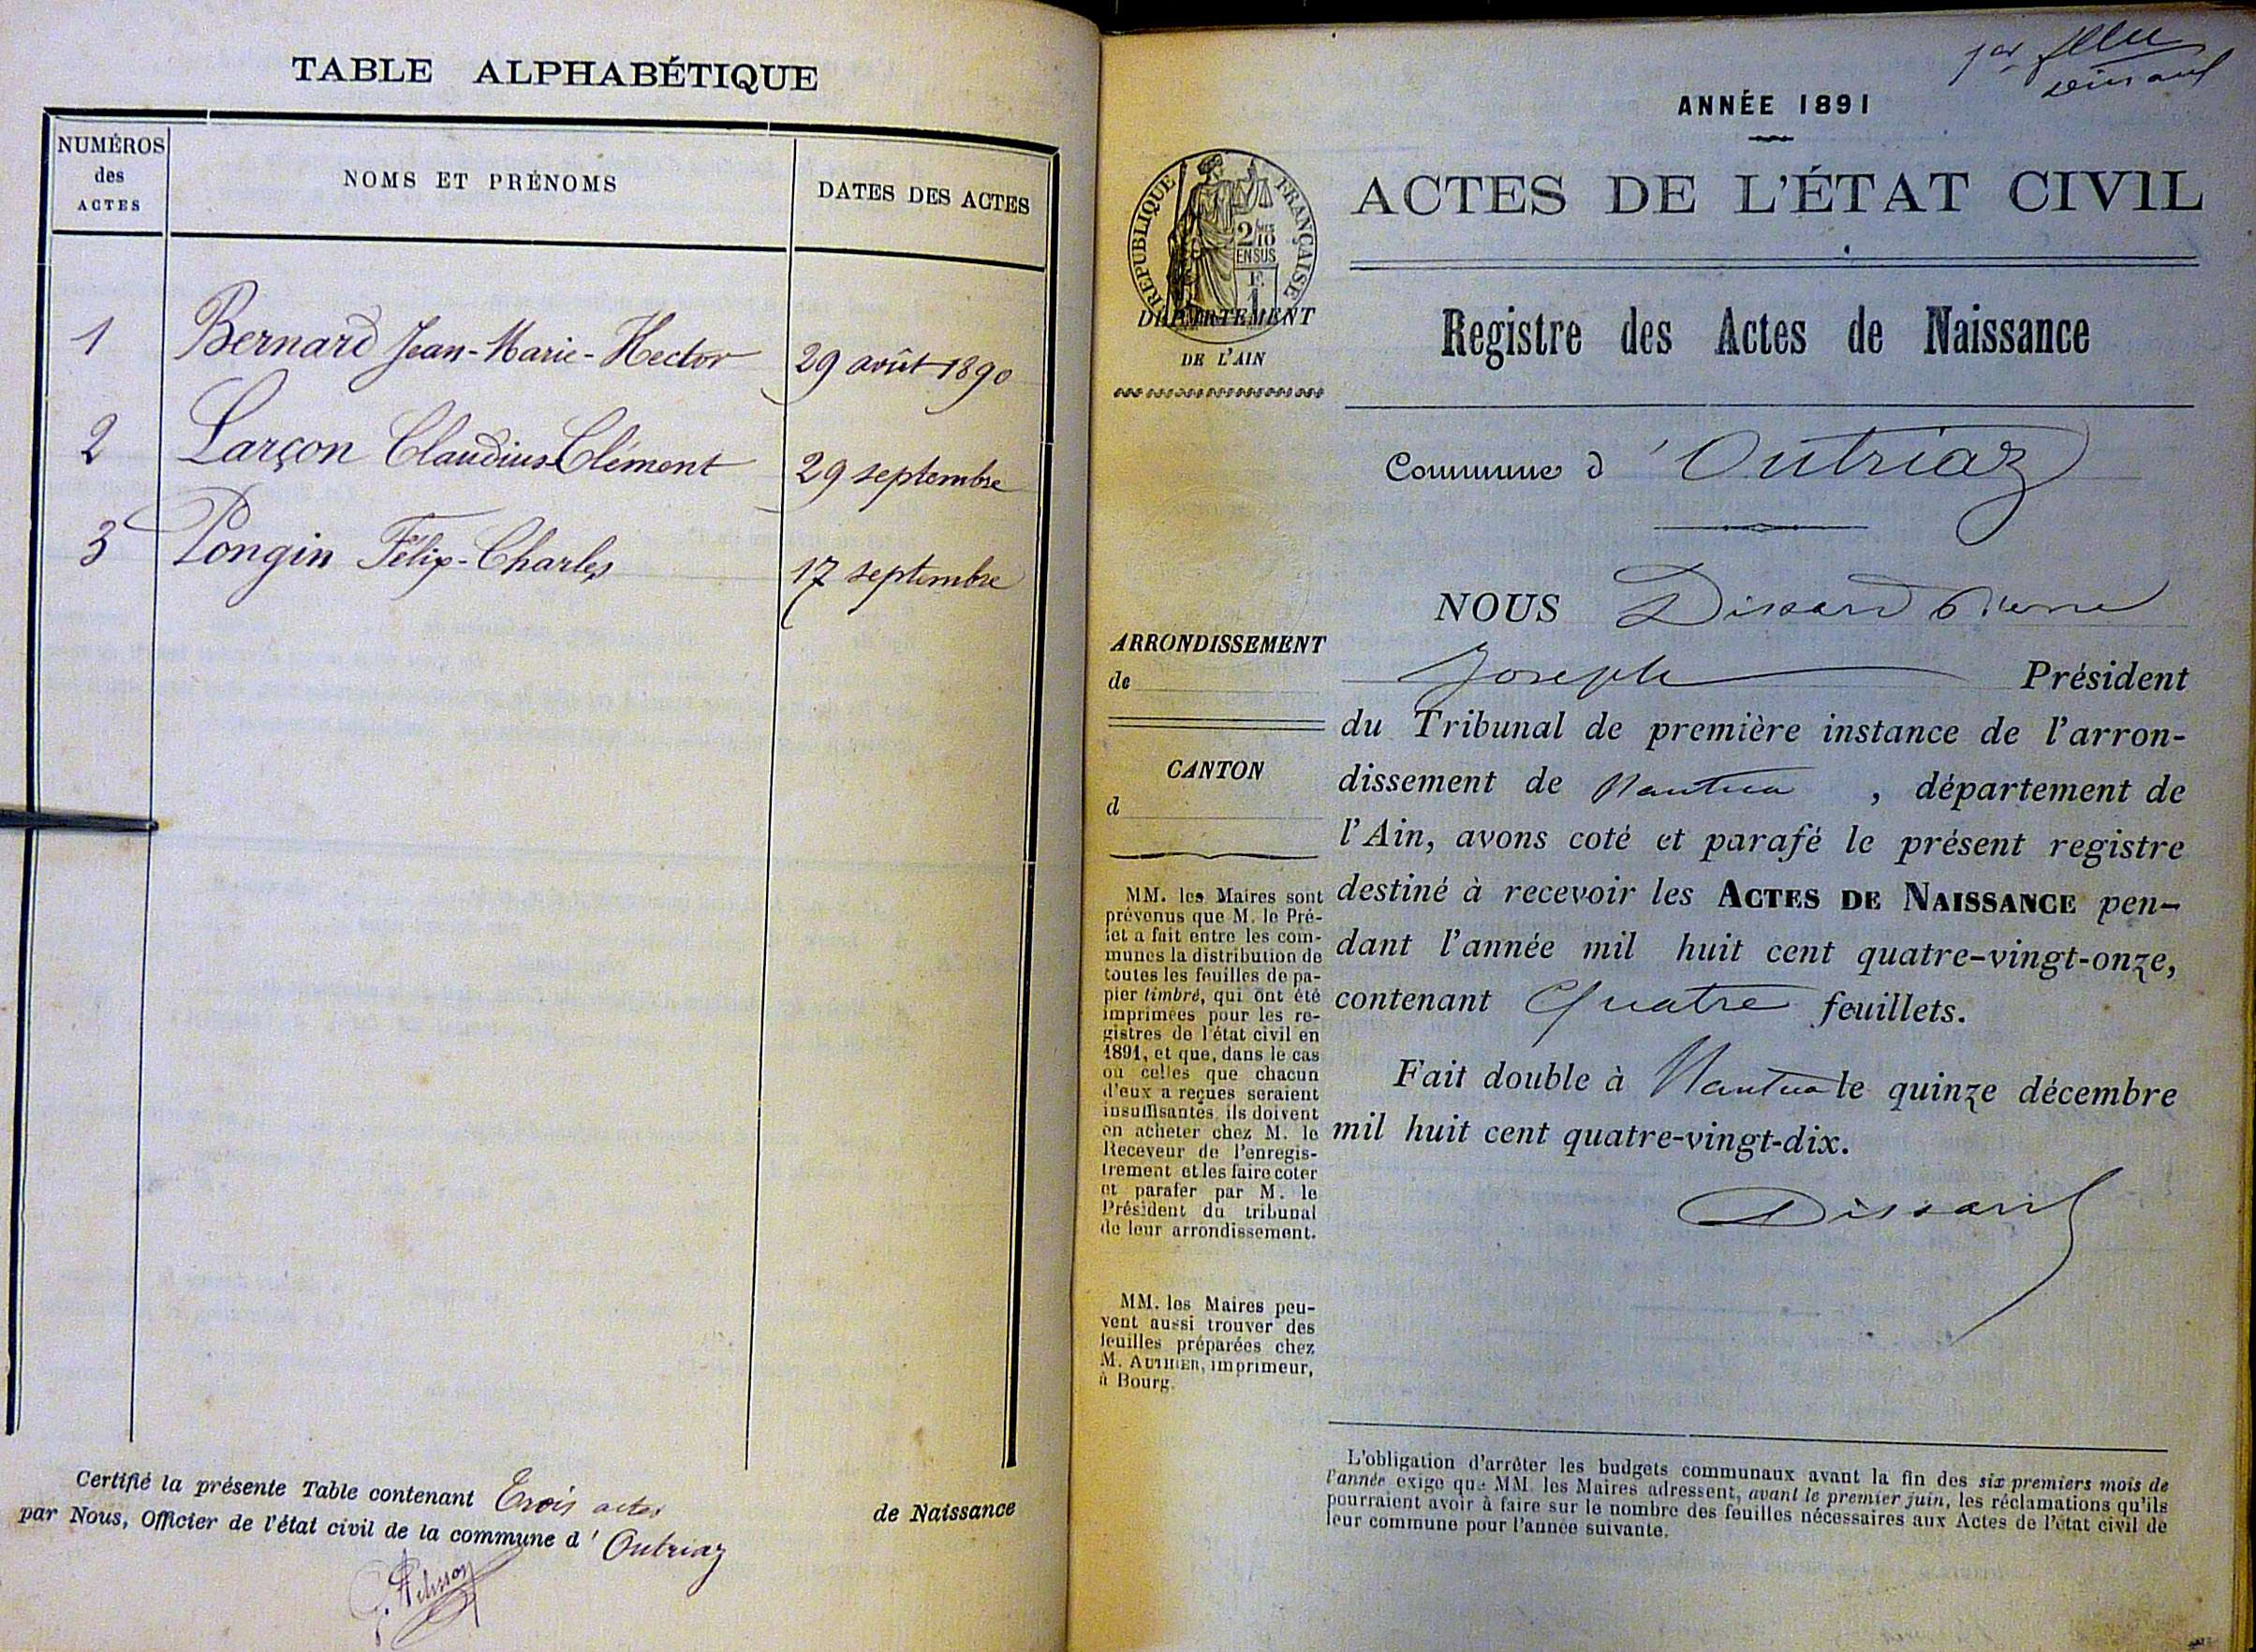 TABLE ALPHABÉTIQUE
NUMÉROS
des
ACTES
NOMS ET PRÉNOMS
DATES DES ACTES
1 Bernard Jean-Marie-Hector 29 août 1890
2 Larçon Claudius-Clément 29 septembre
3 Pongin Félix-Charles 17 septembre
Certifié la présente Table contenant Trois actes de Naissance
par Nous, Officier de l'état civil de la commune d' Outriaz
1er
ANNÉE 1891
ACTES DE L'ÉTAT CIVIL
RÉPUBLIQUE FRANÇAISE
2/10
EN SUS
DÉPARTEMENT
DE L'AIN
Registre des Actes de Naissance
Commune d'Outriaz
ARRONDISSEMENT
de
CANTON
d
MM. les Maires sont
prévenus que M. le Pré-
fet a fait entre les com-
munes la distribution de
toutes les feuilles de pa-
pier timbré, qui ont été
imprimées pour les re-
gistres de l'état civil en
1891, et que, dans le cas
où celles que chacun
d'eux a reçues seraient
insuffisantes, ils doivent
en acheter chez M. le
Receveur de l'enregis-
trement et les faire coter
et parafer par M. le
Président du tribunal
de leur arrondissement.
MM. les Maires peu-
vent aussi trouver des
feuilles préparées chez
M. AUTHIER, imprimeur,
à Bourg.
NOUS Dissard Pierre
Joseph Président
du Tribunal de première instance de l'arron-
dissement de Nantua, département de
l'Ain, avons coté et parafé le présent registre
destiné à recevoir les ACTES DE NAISSANCE pen-
dant l'année mil huit cent quatre-vingt-onze,
contenant Quatre feuillets.
Fait double à Nantua le quinze décembre
mil huit cent quatre-vingt-dix.
Dissard
L'obligation d'arrêter les budgets communaux avant la fin des six premiers mois de
l'année exige que MM. les Maires adressent, avant le premier juin, les réclamations qu'ils
pourraient avoir à faire sur le nombre des feuilles nécessaires aux Actes de l'état civil de
leur commune pour l'année suivante.